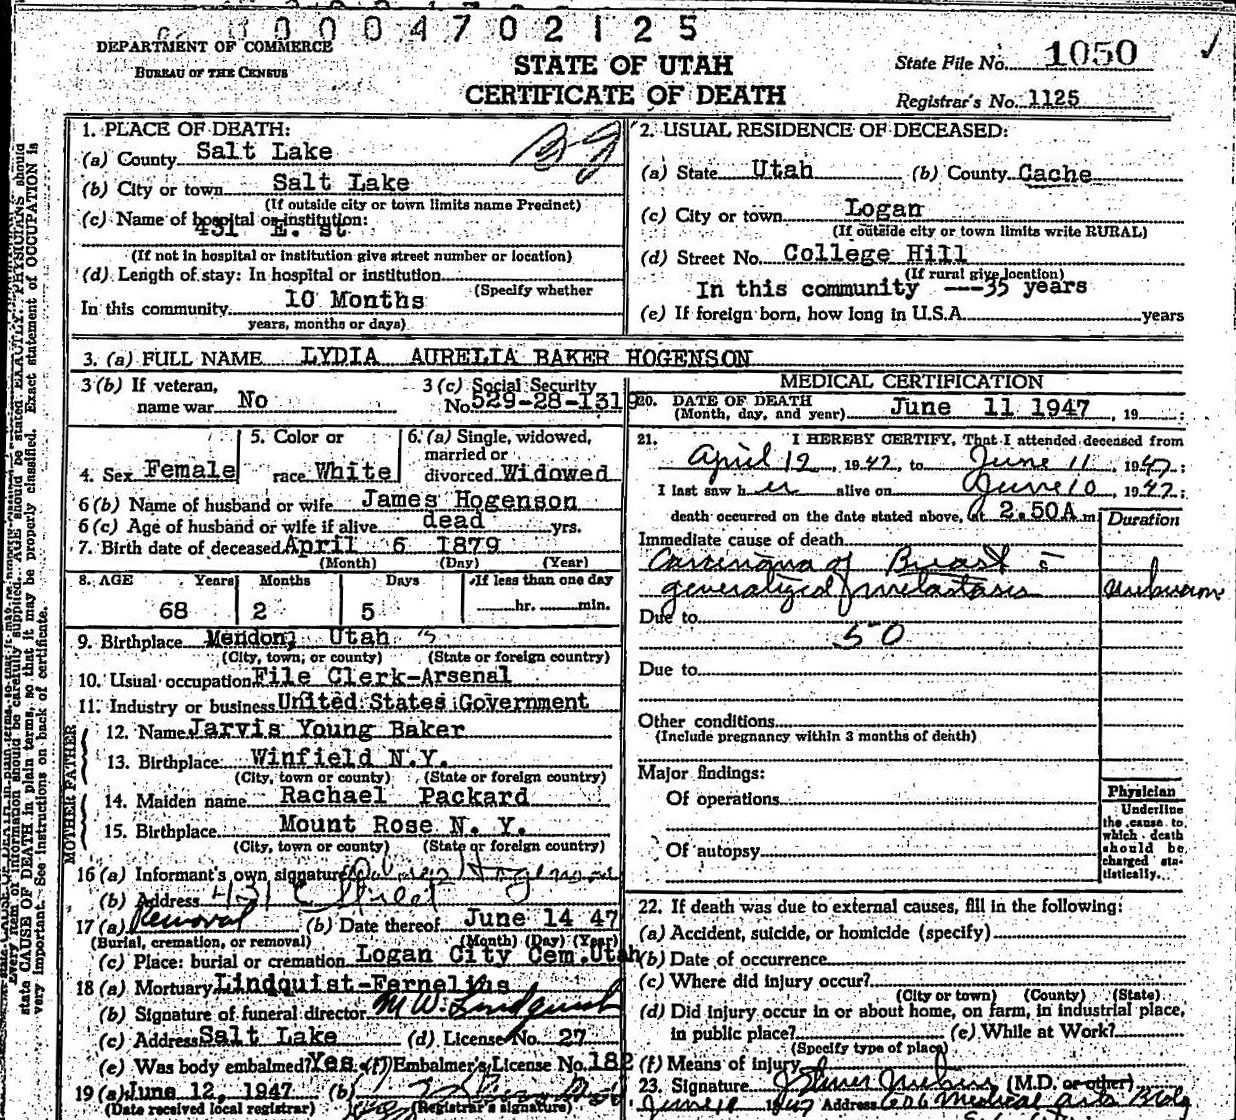 0004702125
DEPARTMENT OF COMMERCE
BUREAU OF THE CENSUS
STATE OF UTAH
CERTIFICATE OF DEATH
State File No. 1050
Registrar's No. 1125
1. PLACE OF DEATH:
(a) County Salt Lake
(b) City or town Salt Lake
(If outside city or town limits name Precinct)
(c) Name of hospital or institution:
431 E. st
(If not in hospital or institution give street number or location)
(d) Length of stay: In hospital or institution
(Specify whether
In this community 10 Months
years, months or days)
2. USUAL RESIDENCE OF DECEASED:
(a) State Utah (b) County Cache
(c) City or town Logan
(If outside city or town limits write RURAL)
(d) Street No. College Hill
(If rural give location)
In this community ---35 years
(e) If foreign born, how long in U.S.A. years
3. (a) FULL NAME LYDIA AURELIA BAKER HOGENSON
3 (b) If veteran, name war No
3 (c) Social Security No. 529-28-1319
4. Sex Female
5. Color or race White
6. (a) Single, widowed, married or divorced Widowed
6 (b) Name of husband or wife James Hogenson
6 (c) Age of husband or wife if alive dead yrs.
7. Birth date of deceased April 6 1879
(Month) (Day) (Year)
8. AGE Years Months Days If less than one day
68 2 5 hr. min.
9. Birthplace Mendon, Utah
(City, town, or county) (State or foreign country)
10. Usual occupation File Clerk-Arsenal
11. Industry or business United States Government
FATHER
12. Name Jarvis Young Baker
13. Birthplace Winfield N.Y.
(City, town or county) (State or foreign country)
MOTHER
14. Maiden name Rachael Packard
15. Birthplace Mount Rose N. Y.
(City, town or county) (State or foreign country)
16 (a) Informant's own signature Hogenson
(b) Address 431 Street
17 (a) Removal (b) Date thereof June 14 47
(Burial, cremation, or removal) (Month) (Day) (Year)
(c) Place: burial or cremation Logan City Cem. Utah
18 (a) Mortuary Lindquist-Fernelius
(b) Signature of funeral director M W. Lindquist
(c) Address Salt Lake (d) License No. 27
(e) Was body embalmed? Yes (f) Embalmer's License No. 182
19 (a) June 12, 1947 (b)
(Date received local registrar) (Registrar's signature)
MEDICAL CERTIFICATION
20. DATE OF DEATH
(Month, day, and year) June 11 1947, 19
21. I HEREBY CERTIFY, That I attended deceased from
April 12, 1947, to June 11, 1947;
I last saw her alive on June 10, 1947;
death occurred on the date stated above, at 2.50A m.
Duration
Immediate cause of death
Carcinoma of Breast
generalized metastasis
Due to
50
Due to
Other conditions
(Include pregnancy within 3 months of death)
Major findings:
Of operations
Of autopsy
Physician
Underline
the cause to
which death
should be
charged sta-
tistically.
22. If death was due to external causes, fill in the following:
(a) Accident, suicide, or homicide (specify)
(b) Date of occurrence
(c) Where did injury occur?
(City or town) (County) (State)
(d) Did injury occur in or about home, on farm, in industrial place,
in public place? (e) While at Work?
(Specify type of place)
(f) Means of injury
23. Signature (M.D. or other)
1947 Address 606 Medical Arts Bldg
state CAUSE OF DEATH in plain terms, so that it may be properly classified. Exact statement of OCCUPATION is
very important. See instructions on back of certificate.